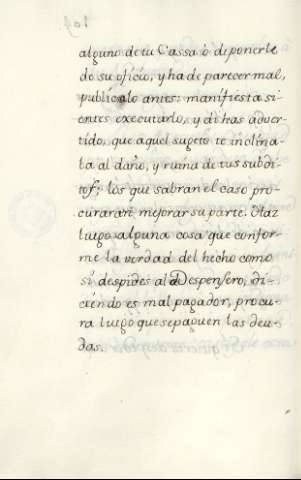 alguno de tu Cassa ò diponerle
de su oficio, y ha de parecer mal,
publicalo antes: manifiesta si
entes executarlo, y di has adver
tido, que aquel sugeto te inclina
ba al daño, y ruina de tus subdi
tos; los que sabran el caso pro
curaran mejorar su parte. Haz
luego alguna cosa que confor
me la verdad del hecho como
si despides al Despensero, di-
ciendo es mal pagador, procu
ra luego que sepaguen las deu-
das.